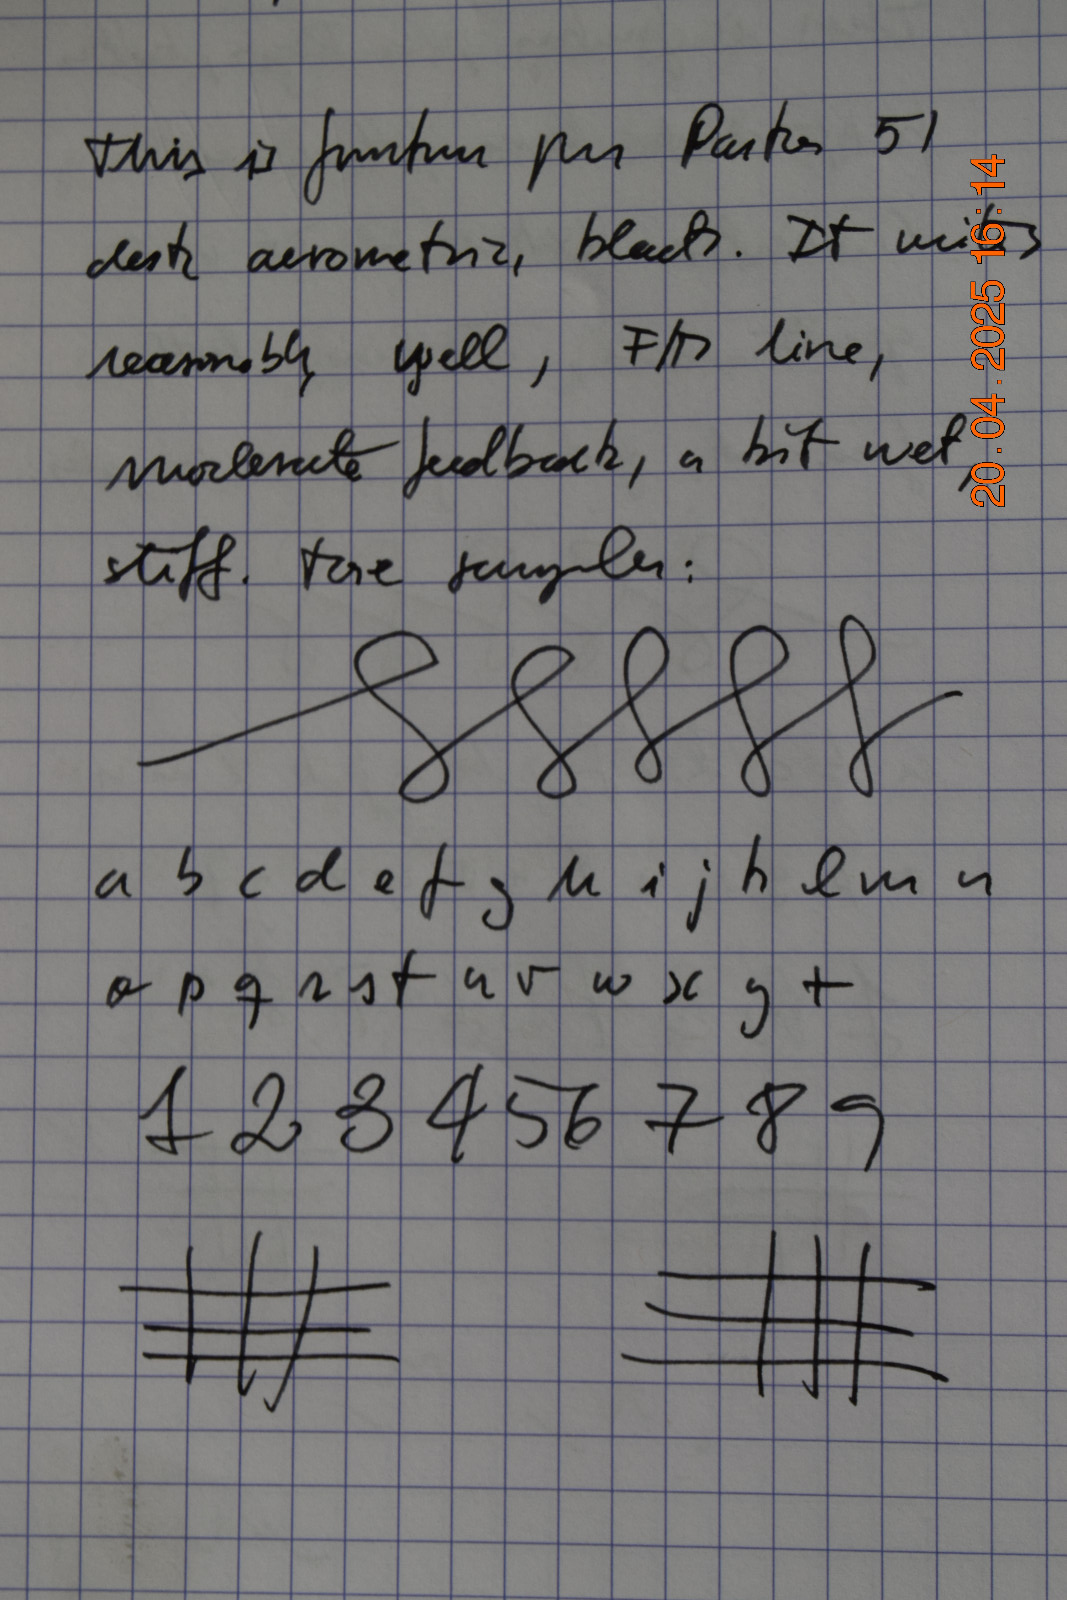 This is fountain pen Parker 51
desk aerometric, black. It writes
reasonably well, F/M line,
moderate feedback, a bit wet,
stiff. Some samples:
a b c d e f g h i j k l m n
o p q r s t u v w x y z
1 2 3 4 5 6 7 8 9
20.04.2025 16:14